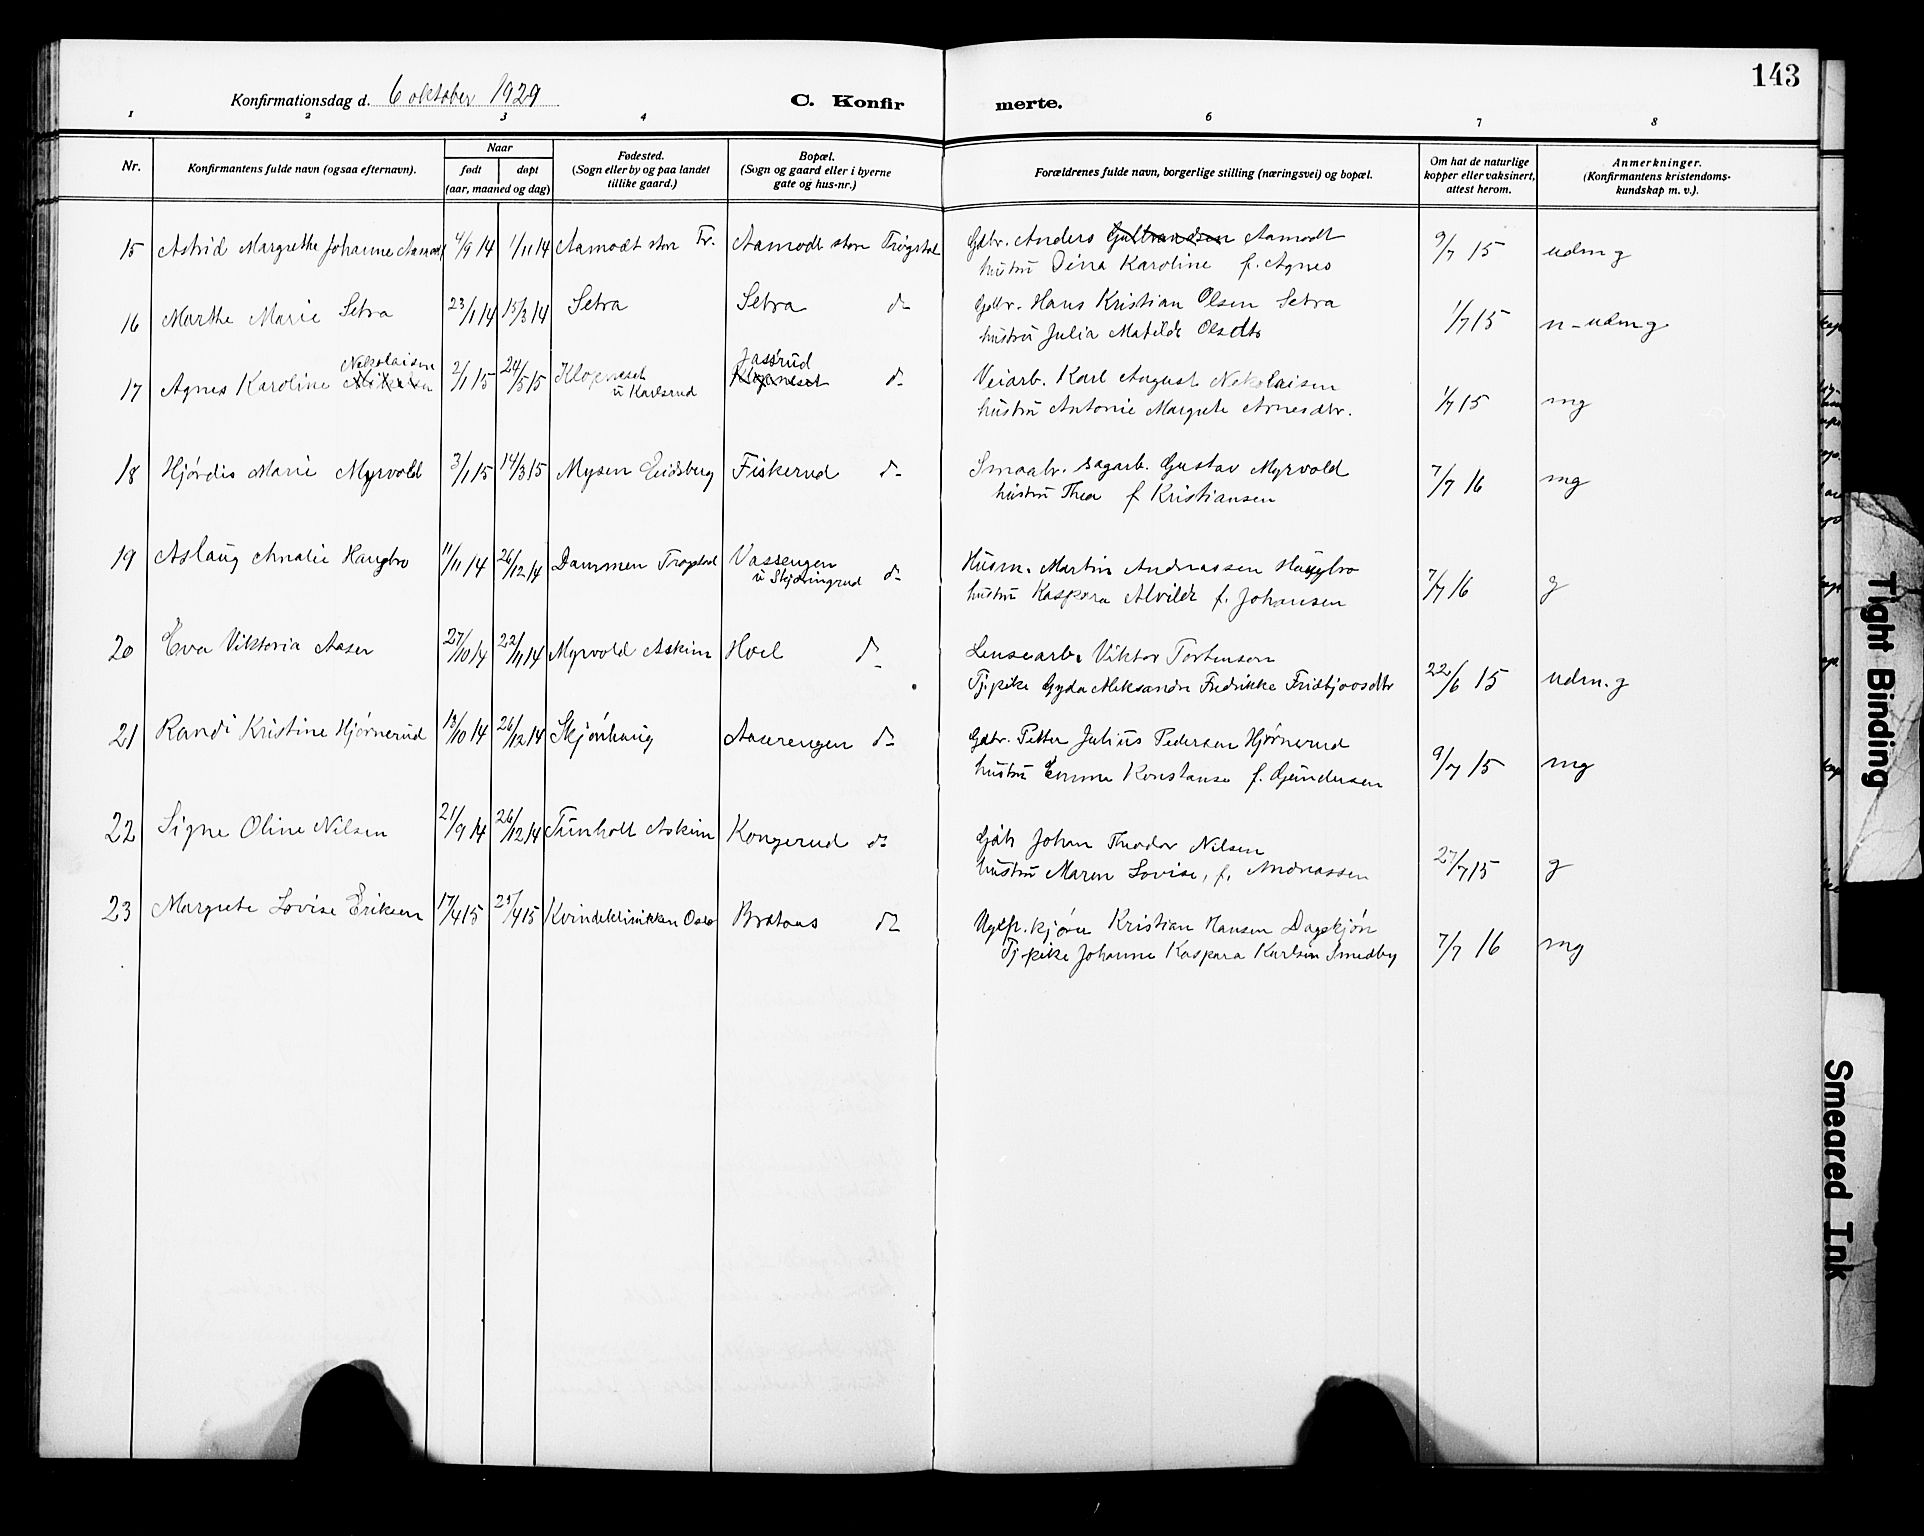 143
Konfirmationsdag d. 6 oktober 1929
C. Konfir merte.
1 2 3 4 6 7 8
Nr.
Konfirmantens fulde navn (ogsaa efternavn).
Naar
født døpt
(aar, maaned og dag)
Fødested.
(Sogn eller by og paa landet
tillike gaard.)
Bopæl.
(Sogn og gaard eller i byerne
gate og hus-nr.)
Forældrenes fulde navn, borgerlige stilling (næringsvei) og bopæl.
Om hat de naturlige
kopper eller vaksinert,
attest herom.
Anmerkninger.
(Konfirmantens kristendoms-
kundskap m. v.).
15 Astrid Margrethe Johanne Aamodt 4/9 14 1/11 14 Aamodt store Tr. Aamodt store Trøgstad Gdbr. Anders Gulbrandsen Aamodt 9/7 15 udm g
hustru Dina Karoline f. Agnes
16 Marthe Marie Setra 23/1 14 15/3 14 Setra Setra do Gdbr. Hans Kristian Olsen Setra 1/7 15 n-udm g
hustru Julia Matilde Olsdtr
Nikolaisen Jassrud
17 Agnes Karoline 2/1 15 24/5 15 Klopneset Klopneset do Veiarb. Karl August Nikolaisen 1/7 15 mg
u Karlsrud hustru Antonie Margrete Arnesdtr.
18 Hjørdis Marie Myrvold 3/1 15 14/3 15 Mysen Eidsberg Fiskerud do Smaabr. sagarb. Gustav Myrvold 7/7 16 mg
hustru Thea f Kristiansen
19 Aslaug Amalie Haugbro 11/11 14 26/12 14 Dammen Trøgstad Vassengen do Husm. Martin Andreassen Haugbro 7/7 16 g
hustru Kaspara Alvilde f. Johansen
20 Eva Viktoria Aasen 27/10 14 22/11 14 Myrvold Askim Hoel do Lensearb. Viktor Torstensen 22/6 15 udm. g
Tj.pike Gyda Aleksandra Fredrikke Fridtjovsdtr
21 Randi Kristine Hjørnerud 18/10 14 26/12 14 Skjønhaug Aaserengen do Gdbr. Petter Julius Pedersen Hjørnerud 9/7 15 mg
hustru Emma Konstanse f. Gundersen
22 Signe Oline Nilsen 21/9 14 26/12 14 Tunholt Askim Kongerud do Gdb Johan Theodor Nilsen 27/7 15 g
hustru Maren Lovise, f. Andreassen
23 Margrete Lovise Eriksen 17/4 15 25/4 15 Kvindeklinikken Oslo Bråtaas do Ugift kjører Kristian Hansen Dagskjøn 7/7 16 mg
Tj.pike Johanne Kaspara Karlsen Smedby
Tight Binding
Smeared Ink